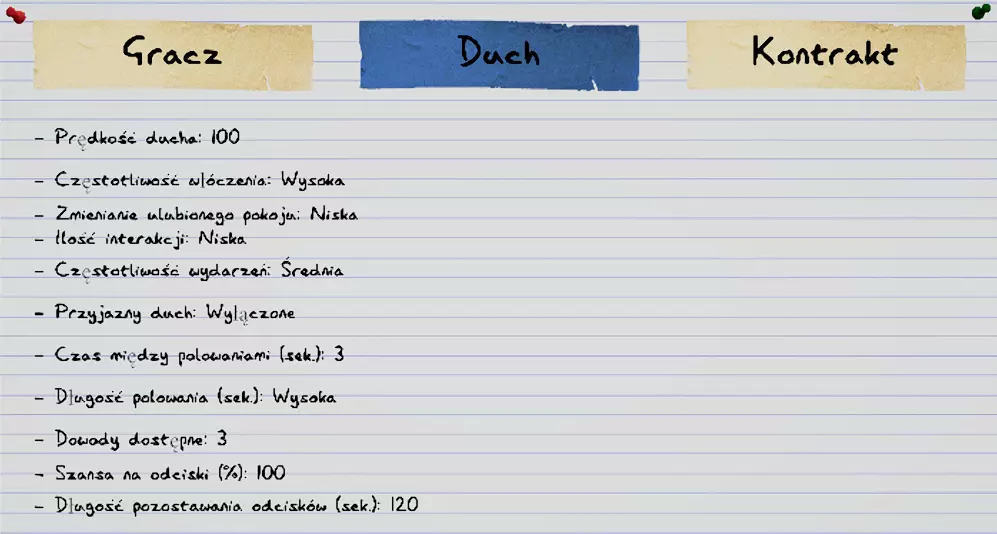 Gracz
Duch
Kontrakt
- Prędkość ducha: 100
- Częstotliwość włóczenia: Wysoka
- Zmienianie ulubionego pokoju: Niska
- Ilość interakcji: Niska
- Częstotliwość wydarzeń: Średnia
- Przyjazny duch: Wyłączone
- Czas między polowaniami (sek.): 3
- Długość polowania (sek.): Wysoka
- Dowody dostępne: 3
- Szansa na odciski (%): 100
- Długość pozostawania odcisków (sek.): 120